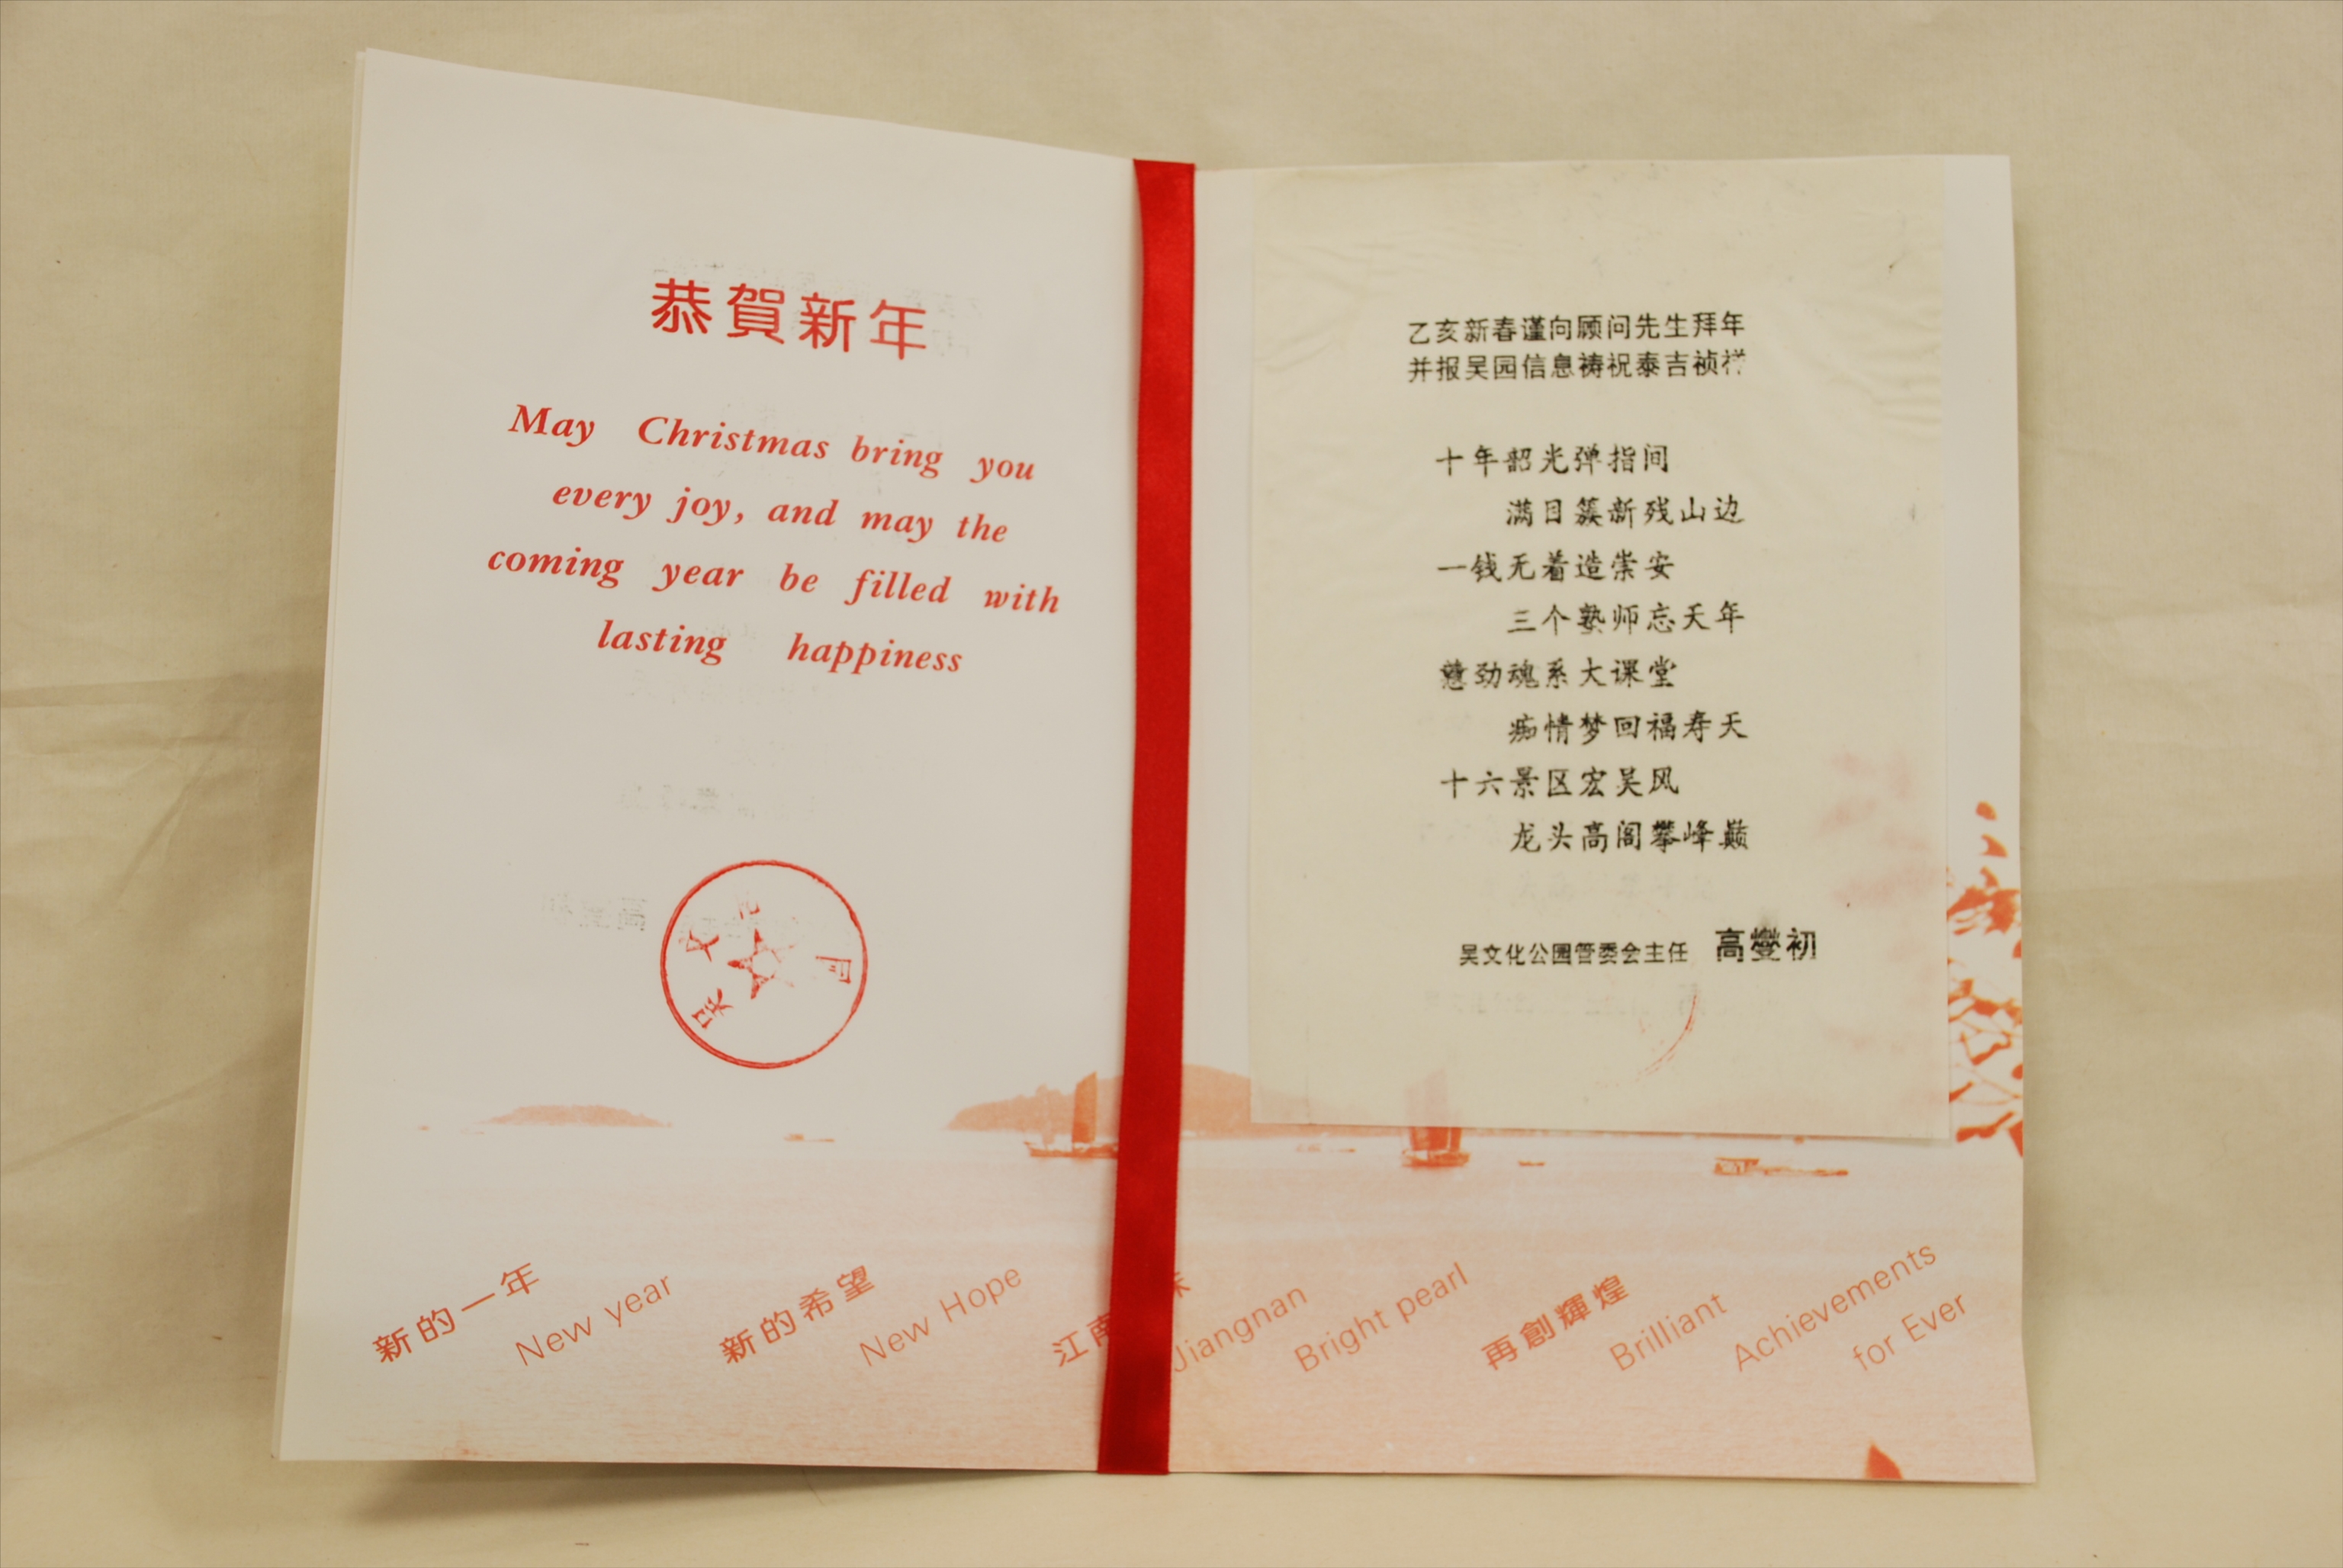 恭賀新年
May Christmas bring you
every joy, and may the
coming year be filled with
lasting happiness
吴文
园
新的一年
New year
新的希望
New Hope
江南
Jiangnan
Bright pearl
再創輝煌
Brilliant
Achievements
for Ever
乙亥新春谨向顾问先生拜年
并报吴园信息祷祝泰吉祯祥
十年韶光弹指间
满目簇新残山边
一钱无着造崇安
三个塾师忘天年
劲魂系大课堂
痴情梦回福寿天
十六景区宏吴风
龙头高阁攀峰巅
吴文化公园管委会主任 高燮初